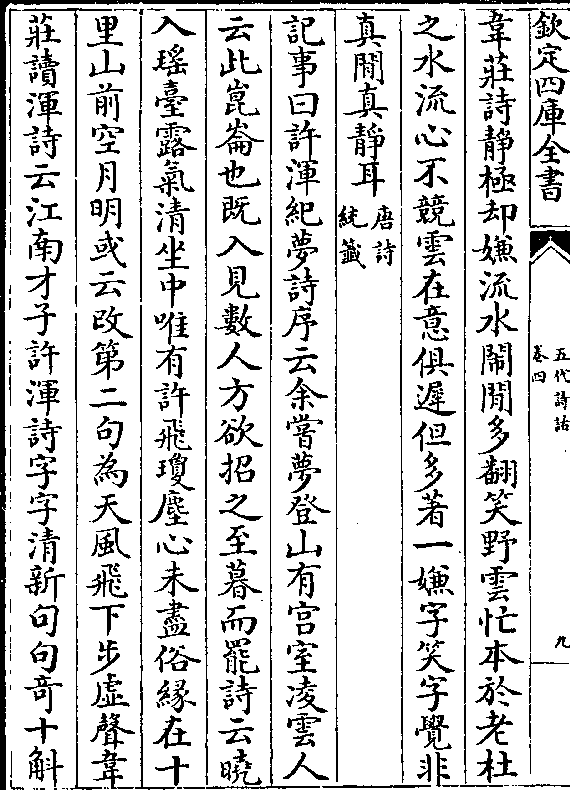 欽定四庫全書
五代詩話
卷四
九
韋莊詩靜極却嫌流水鬧閒多翻笑野雲忙本於老杜
之水流心不競雲在意俱遲但多著一嫌字笑字覺非
真閒真靜耳
唐詩
統籤
記事曰許渾紀夢詩序云余嘗夢登山有宫室凌雲人
云此崑崙也既入見數人方欲招之至暮而罷詩云曉
入瑶臺露氣清坐中唯有許飛瓊塵心未盡俗緣在十
里山前空月明或云改第二句為天風飛下步虛聲韋
莊讀渾詩云江南才子許渾詩字字清新句句奇十斛